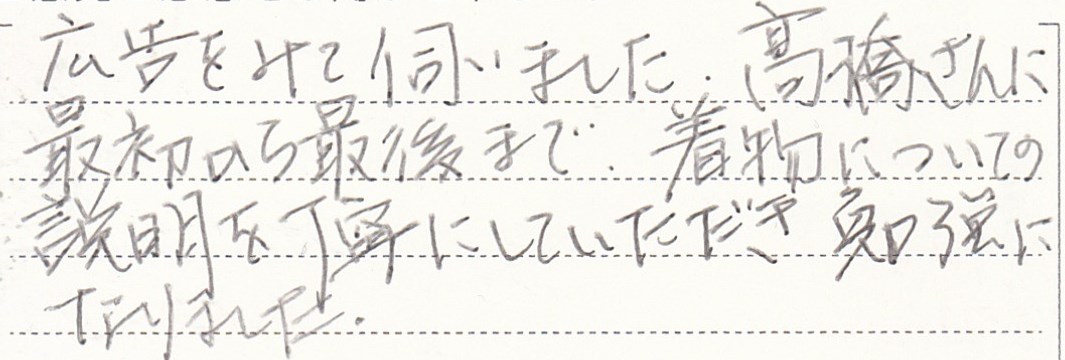 広告をみて伺いました。高橋さんに
最初から最後まで、着物についての
説明を丁寧にしていただき勉強に
なりました。